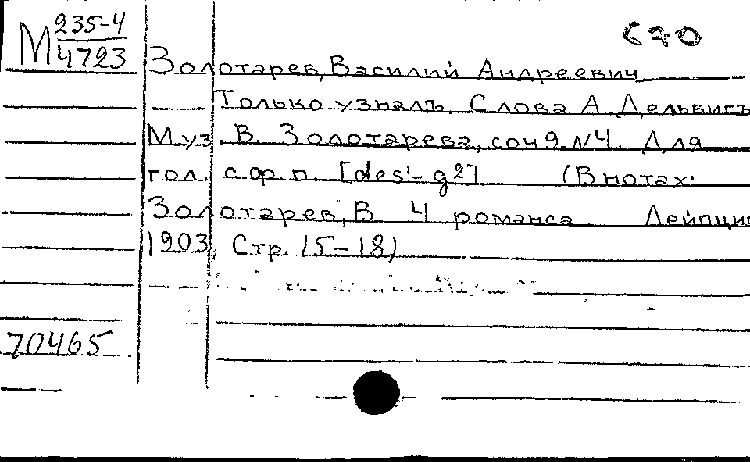 М 235-4
4723
Золотарев, Василий Андреевич
Только узналъ. Слова А. Дельвигъ
Муз. В. Золотарева, соч 9. №4. Для
гол. с ф. п. [des¹-g²] (В нотах:
Золотарев, В. 4 романса Лейпциг
1903, Стр. 15-18)
70465